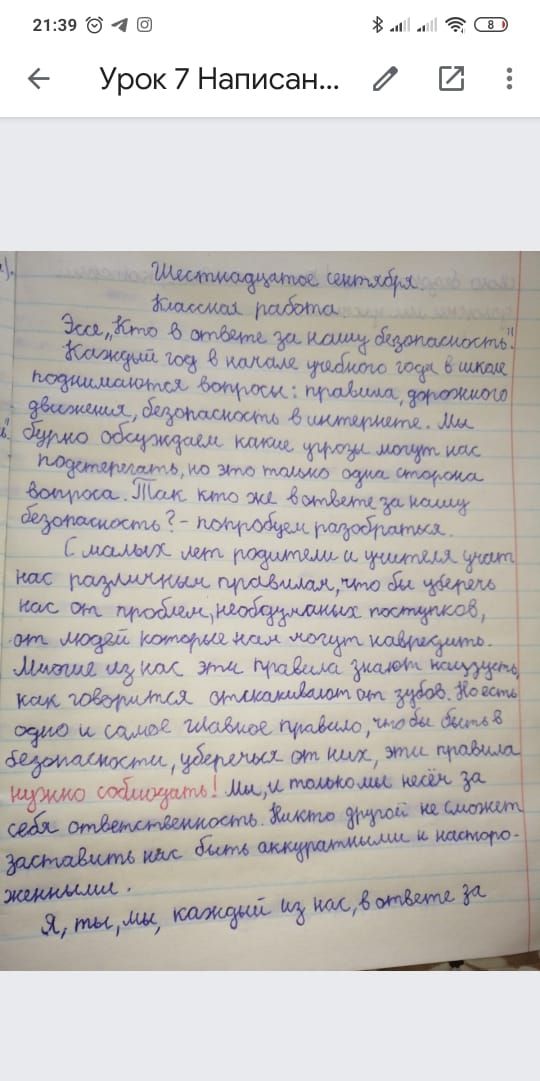 21:39
8
Урок 7 Написан...
Шестнадцатое сентября
Классная работа
Эссе „Кто в ответе за нашу безопасность."
Каждый год в начале учебного года в школе
поднимаются вопросы: правила, дорожного
движения, безопасность в интернете. Мы
бурно обсуждаем какие угрозы могут нас
подстерегать, но это только одна сторона
вопроса. Так кто же в ответе за нашу
безопасность? - попробуем разобраться.
С малых лет родители и учителя учат
нас различным правилам, что бы уберечь
нас от проблем, необдуманых поступков,
от людей которые нам могут навредить.
Многие из нас эти правила знают наизусть,
как говорится отскакивают от зубов. Но есть
одно и самое главное правило, что бы быть в
безопасности, уберечься от них, эти правила
нужно соблюдать! Мы, и только мы несём за
себя ответственность. Никто другой не сможет
заставить нас быть аккуратными и насторо-
женными.
Я, ты, мы, каждый из нас, в ответе за